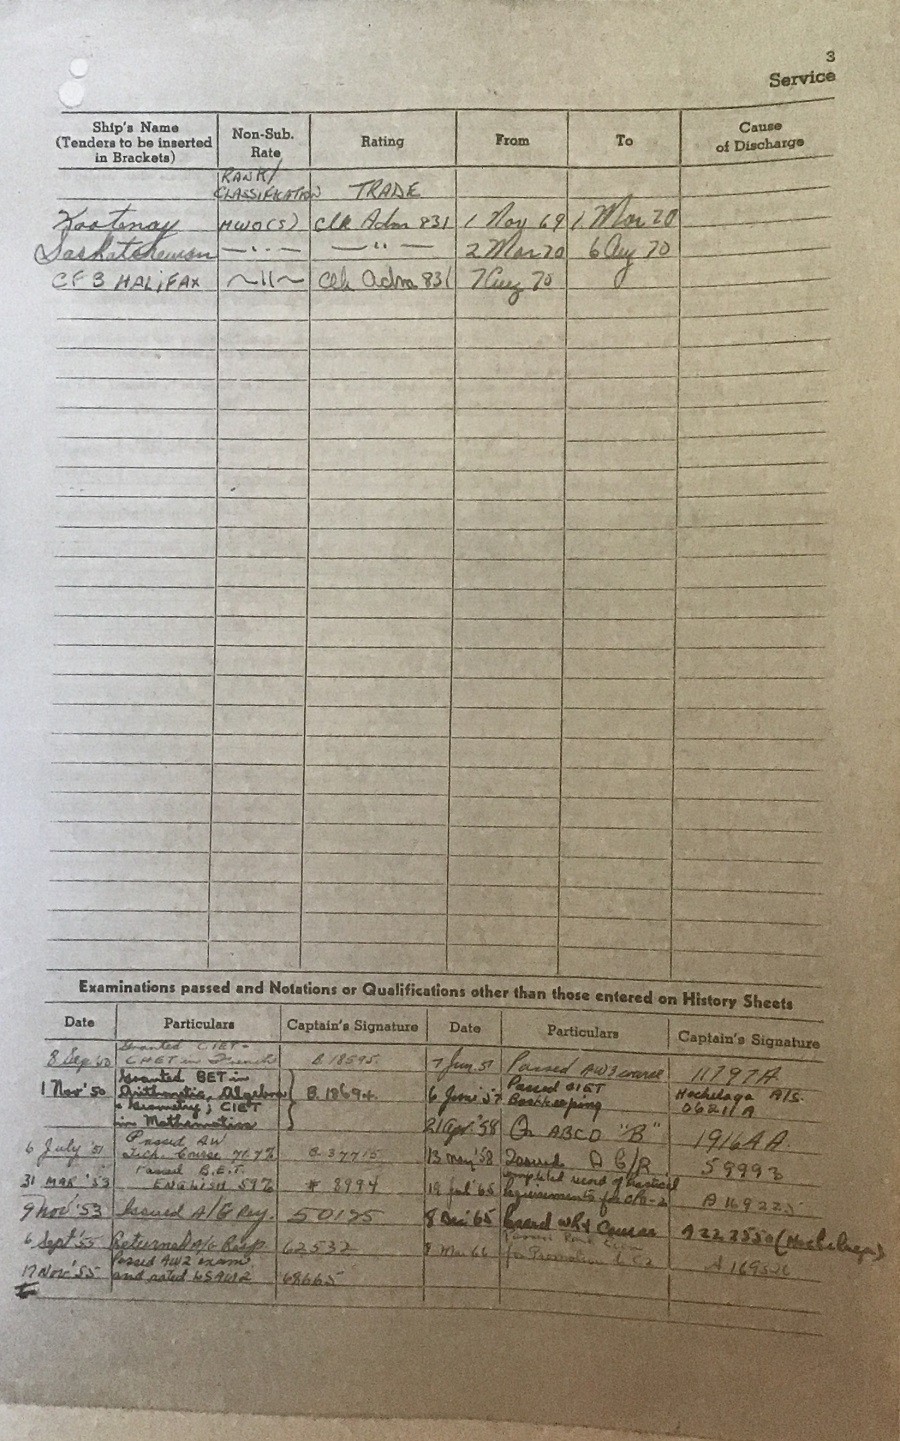 3
Service
Ship's Name
(Tenders to be inserted
in Brackets)
Non-Sub.
Rate
Rating
From
To
Cause
of Discharge
RANK/
CLASSIFICATION TRADE
Kootenay MWO(S) Clk Adm 831 1 Nov 69 1 Mar 70
Saskatchewan —"— —"— 2 Mar 70 6 Aug 70
CFB HALIFAX ~11~ Clk Adm 831 7 Aug 70
Examinations passed and Notations or Qualifications other than those entered on History Sheets
Date Particulars Captain's Signature Date Particulars Captain's Signature
8 Sep Granted CIET-
CHET in French B 18595
1 Nov '50 Granted BET in
Arithmetic, Algebra
& Geometry; CIET
in Mathematics
6 July '51 Passed AW
Tech. Course 71.7% B 37715
31 Mar '53 Passed B.E.T.
ENGLISH 59% # 8994
9 Nov '53 Issued A/G 50195
6 Sept '55 Returned 62532
17 Nov '55 Passed AW2 exam
and rated 68665
7 Jun 57 Passed AW3 course 11797A
6 June '57 Passed CIET
Bookkeeping
Hochelaga A/S.
06211A
21 Apr '58 ABCD "B" 19164A
13 May '58 Issued 59993
Completed record of practical
requirements for
8 Dec 65 Course A222550 (Hochelaga)
8 Mar 66 for Promotion